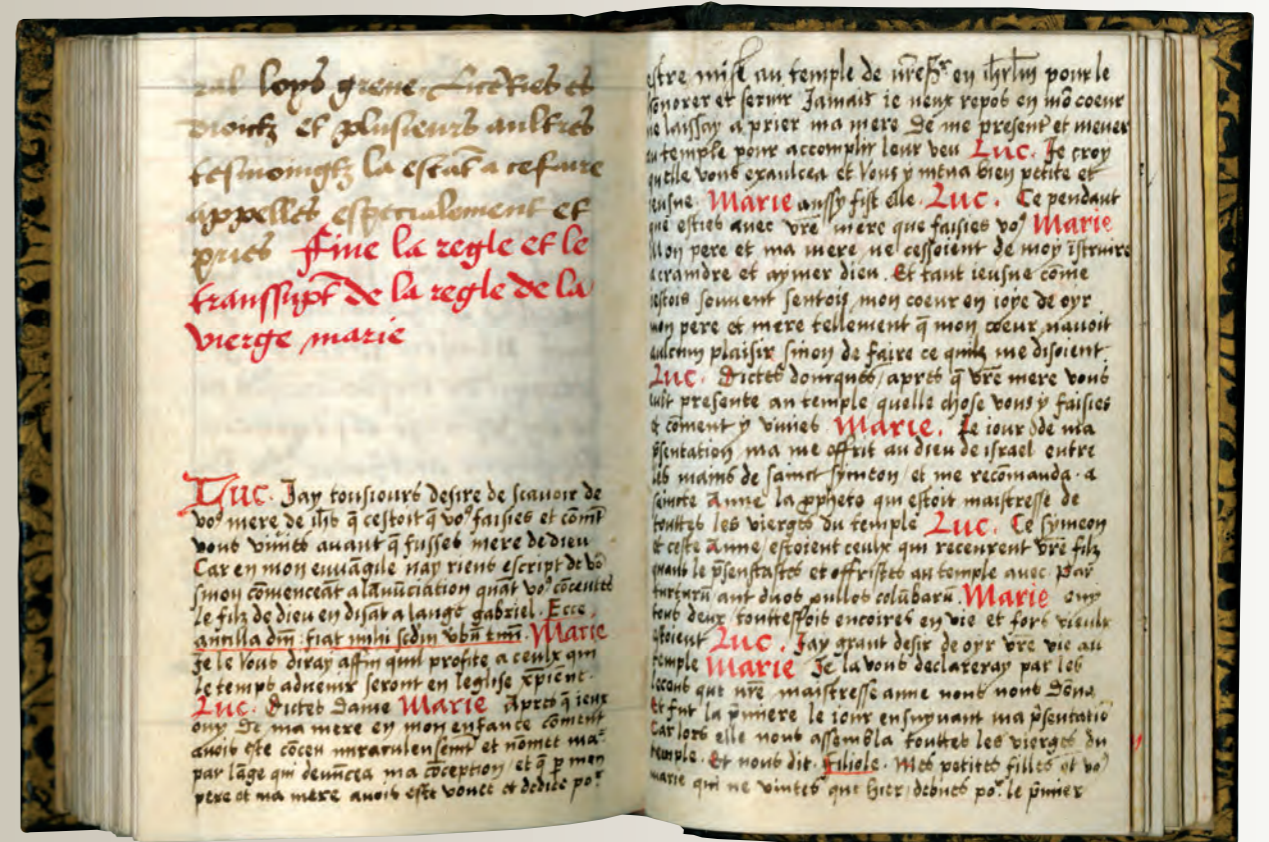 ral loys greue. Licēcies es
droictz et plusieurs aultres
tesmoingtz la estāt a ce faire
appelles espetialement et
pries Fine la regle et le
transsupt de la regle de la
vierge marie
Luc. Jay tousiours desire de scauoir de
vo9 mere de ih̄s q̄ cestoit q̄ vo9 faisies et cōmt
vous viuies auant q̄ fusses mere de dieu
Car en mon euuāgile nay riens escript de vo9
sinon cōmenceāt a lānūciation quāt vo9 cōceutes
le filz de dieu en disāt a lange gabriel. Ecce
ancilla dm̄: fiat mihi scdm vbū tuū. Marie
Je le vous diray affin quil profite a ceulx qui
le temps aduenir seront en leglise xpiene.
Luc. Dictes dame Marie Apres q̄ ieux
ouy de ma mere en mon enfance cōment
auois este cōceu miraculeusemt et nōmee ma
par lāge qui denūcea ma cōception/ et q̄ p mon
pere et ma mere auois este vouee et dediee por
estre mise au temple de nr̄e sr en ihrlm pour le
honorer et seruir Jamais ie neux repos en mō coeur
ne laissay a prier ma mere de me presentr et mener
au temple pour accomplir leur veu Luc. Je croy
quelle vous exaulcea et vous y mena bien petite et
ieusne Marie aussy fist elle. Luc. Ce pendant
que esties auec vr̄e mere que faisies vo9 Marie
Mon pere et ma mere ne cessoient de moy īstruire
a craindre et aymer dieu. Et tant ieusne cōme
iestois souuent sentois mon coeur en ioye de oyr
mon pere et mere tellement q̄ mon coeur nauoit
aulcun plaisir sinon de faire ce quilz me disoient
Luc. Dictes doncques/ apres q̄ vr̄e mere vous
eust presente au temple quelle chose vous y faisies
et cōment y viuies Marie. Le iour de ma
p̄sentation ma me offrit au dieu de israel entre
les mains de sainct symeon/ et me recōmanda a
saincte Anne la p̄phete qui estoit maistresse de
touttes les vierges du temple Luc. Ce symeon
et ceste Anne/ estoient ceulx qui receurent vr̄e filz
quant le p̄sentastes et offristes au temple auec. Par
turturū aut duos pullos colūbarū. Marie ouy
tous deux/ touttesfois encoires en vie et fors vieulx
estoient Luc. Jay grant desir de oyr vr̄e vie au
temple Marie Je la vous declareray par les
lecons que nr̄e maistresse anne nous nous dōna
Et fut la p̄miere le iour ensuyuant ma p̄sentatiō
Car lors elle nous assembla touttes les vierges du
temple. Et nous dit. Filiole. Mes petites filles et vo9
marie qui ne vintes que hier/ debues por le p̄mier